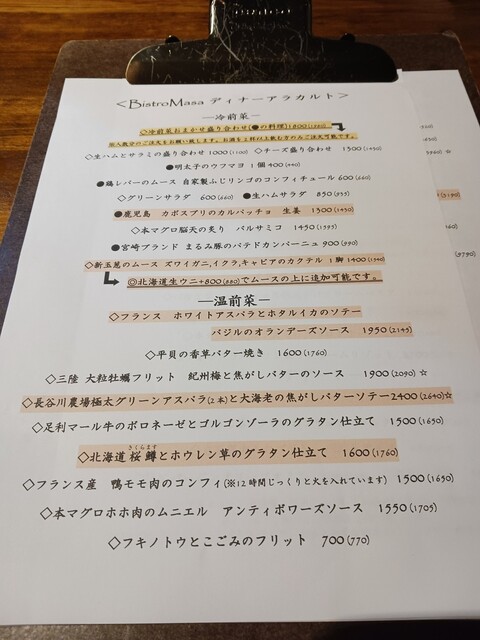 ＜BistroMasa ディナーアラカルト＞
―冷前菜―
◇冷前菜おまかせ盛り合わせ(●の料理)1800(1980)
※人数分にご注文をお願い致します。お酒を１杯以上飲む方のみご注文可能です。
◇生ハムとサラミの盛り合わせ 1000(1100) ◇チーズ盛り合わせ 1300(1430)
●明太子のウフマヨ 1個 400(440)
●鶏レバーのムース 自家製ふじリンゴのコンフィチュール 600(660)
◇グリーンサラダ 600(660) ●生ハムサラダ 850(935)
●鹿児島 カボスブリのカルパッチョ 生姜 1300(1430)
◇本マグロ脳天の炙り バルサミコ 1450(1595)
●宮崎ブランド まるみ豚のパテドカンパーニュ 900(990)
◇新玉葱のムース ズワイガニ,イクラ,キャビアのカクテル 1脚 1400(1540)
◎北海道生ウニ+800(880)でムースの上に追加可能です。
―温前菜―
◇フランス ホワイトアスパラとホタルイカのソテー
バジルのオランデーズソース 1950(2145)
◇平貝の香草バター焼き 1600(1760)
◇三陸 大粒牡蠣フリット 紀州梅と焦がしバターのソース 1900(2090)☆
◇長谷川農場極太グリーンアスパラ(2本)と大海老の焦がしバターソテー2400(2640)☆
◇足利マール牛のボロネーゼとゴルゴンゾーラのグラタン仕立て 1500(1650)
◇北海道桜鱒とホウレン草のグラタン仕立て 1600(1760)
さくらます
◇フランス産 鴨モモ肉のコンフィ(※12時間じっくりと火を入れています) 1500(1650)
◇本マグロホホ肉のムニエル アンティボワーズソース 1550(1705)
◇フキノトウとこごみのフリット 700(770)